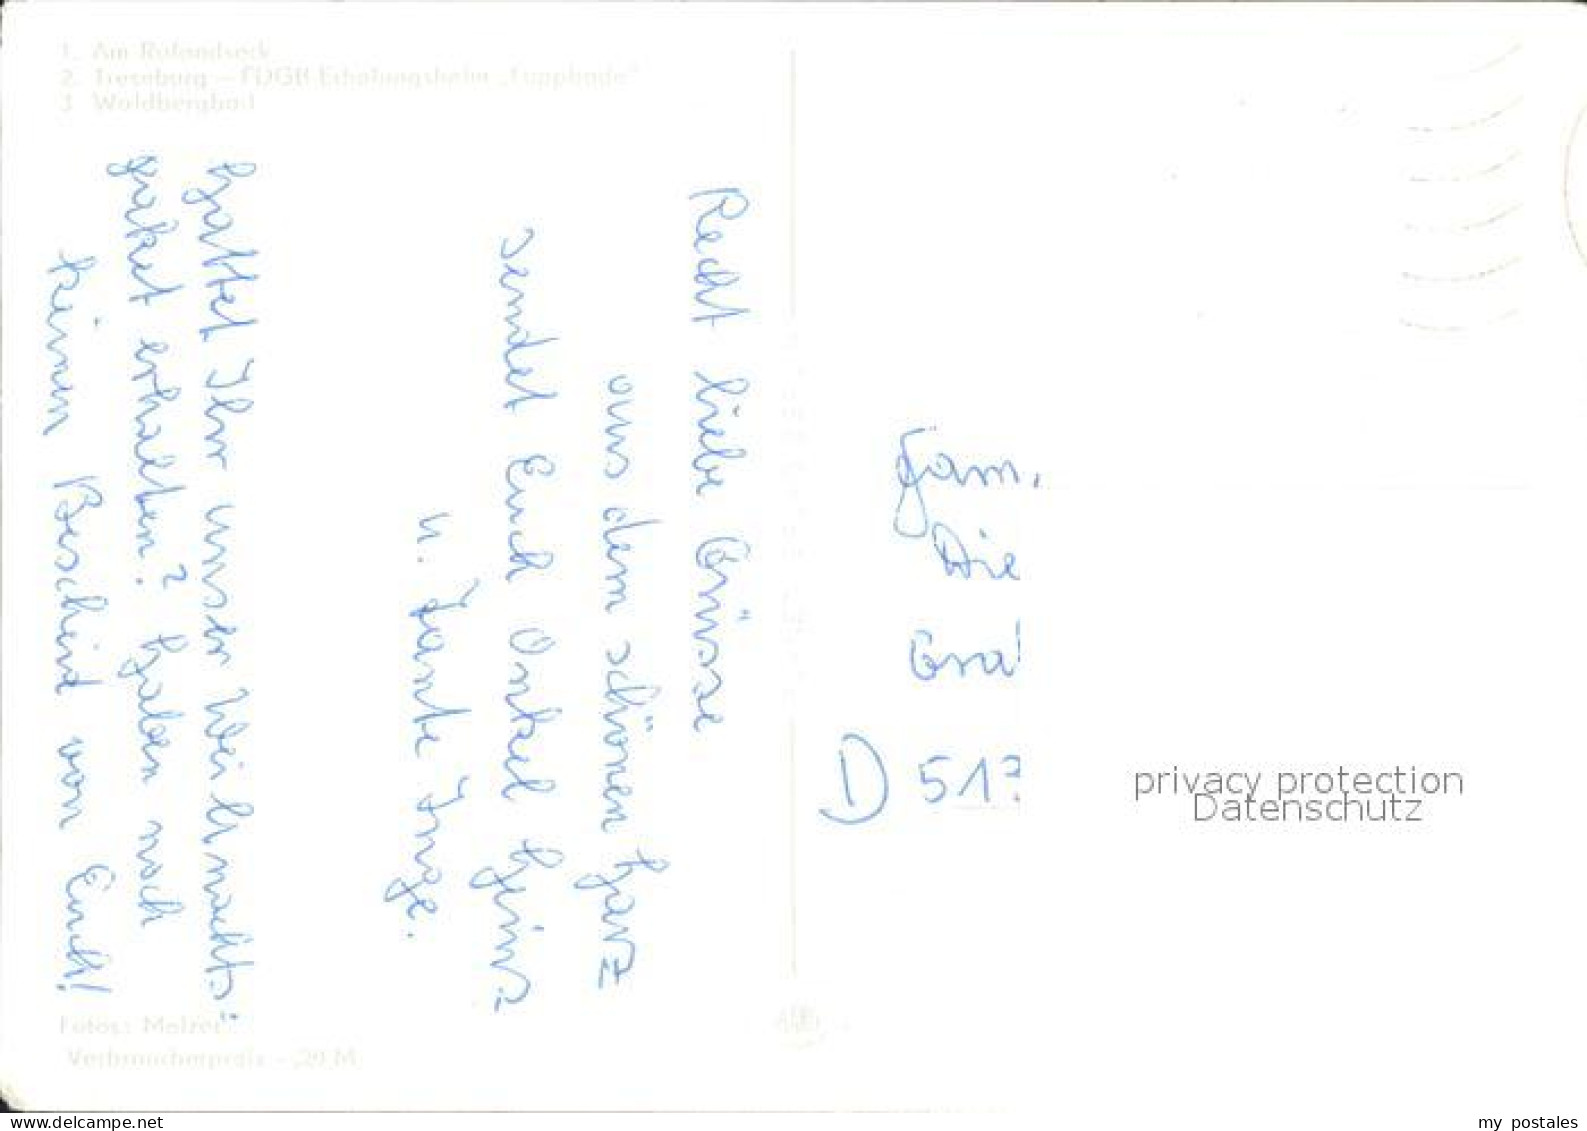 1. Am Rolandseck
2. Treseburg – FDGB-Erholungsheim „Luppbode“
3. Waldbergbad
Recht liebe Grüsse
aus dem schönen Harz
sendet Euch Onkel Heinz
u. Tante Inge.
Hattet Ihr unser Weihnachts=
paket erhalten? Haben noch
keinen Bescheid von Euch!
Fotos: Melzer
Verbraucherpreis -,20 M
Fam.
Die
Gra
D 513
privacy protection
Datenschutz
delcampe.net
my_postales